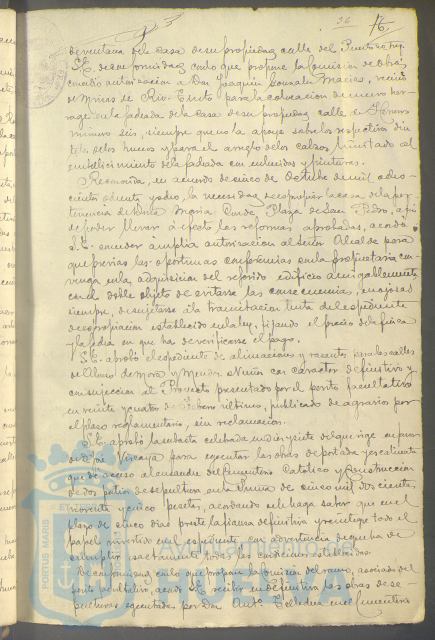 16
de ventana del casa de su propiedad calle del Puerto
S. E. de conformidad con lo que propone la Comisión de Obras
concedió autorización a Don Joaquín González Macías, vecino
de Minas de Rio-Tinto para la colocación de un nuevo her-
raje en la fachada de la casa de su propiedad calle de Herreros
número seis, siempre que no la apoye sobre los respectivos din-
teles de los huecos y para el arreglo de los calzos limitado al
embellecimiento de la fachada con enlucidos y pinturas.
Reconocida, en acuerdo de cinco de Octubre de mil ocho-
cientos ochenta y ocho, la necesidad de expropiar la casa de la per-
tenencia de Doña María Conde, Plaza de San Pedro, a fin
de poder llevar a efecto las reformas aprobadas, acordó
S. E. conceder amplia autorización al Señor Alcalde para
que previas las oportunas conferencias con la propietaria con-
venga en la adquisición del referido edificio amigablemente
con el doble objeto de evitarse las consecuencias, enojosas
siempre, de sujetarse a la tramitación lenta del expediente
de expropiación establecido en la ley, fijando el precio de la finca
y la fecha en que ha de verificarse el pago.
S. E. aprobó el expediente de alineaciones y rasantes para las calles
de Alonso de Mora y Mendez Nuñez con carácter definitivo y
con sujeción al Proyecto presentado por el perito facultativo
en veinte y cuatro de último, publicado de agravios por
el plazo reglamentario, sin reclamación.
S. E. aprobó la subasta celebrada en diez y siete del que rige en favor
de José Vizcaya para ejecutar las obras de portada y escalinata
que de acceso al ensanche del Cementerio Católico y construcción
de dos patios de sepultura en la suma de cinco mil doscientas
noventa y cinco pesetas, acordando se le haga saber que en el
plazo de cinco días preste la fianza definitiva y reintegre todo el
papel invertido en el expediente con advertencia de que ha de
cumplir exactamente todas las condiciones establecidas.
De conformidad con lo que propone la Comisión del ramo, asociada del
perito facultativo, acordó S. E. recibir en definitiva las obras de se-
pulturas ejecutadas por Don Anto. en el Cementerio
PORTUS MARIS
HUELVA